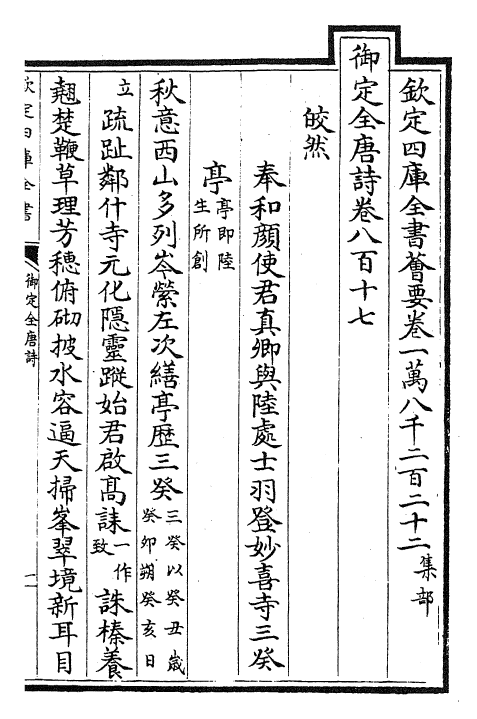 欽定四庫全書薈要卷一萬八千二百二十二 集部
御定全唐詩卷八百十七
皎然
奉和顔使君真卿與陸處士羽登妙喜寺三癸
亭 亭即陸
生所創
秋意西山多列岑縈左次繕亭歴三癸 三癸以癸丑歲
癸卯朔癸亥日
立 疏趾鄰什寺元化隱靈蹤始君啟髙誄 一作
致 誅榛養
翹楚鞭草理芳穗俯砌披水容逼天掃峯翠境新耳目
欽定四庫全書
御定全唐詩
一